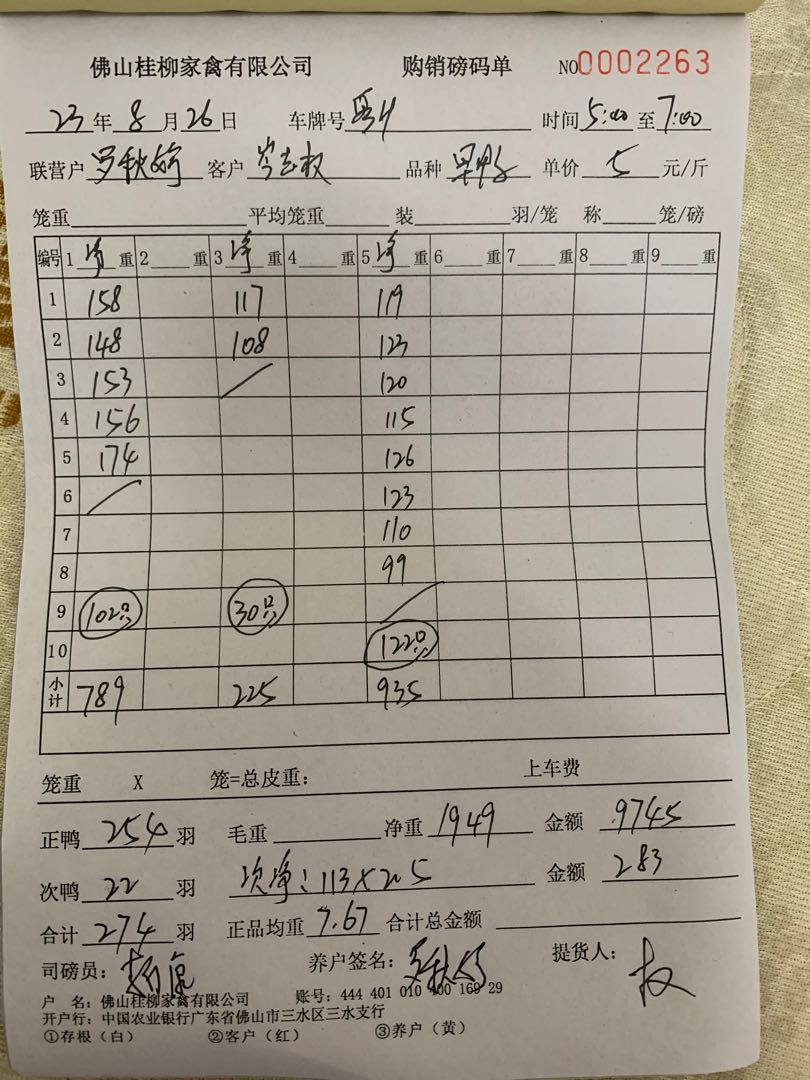 佛山桂柳家禽有限公司 购销磅码单 NO0002263
23年8月26日 车牌号 时间5:00至7:00
联营户罗秋 客户岑志权 品种 单价5元/斤
笼重 平均笼重 装 羽/笼 称 笼/磅
编号 1净重 2 重 3净重 4 重 5净重 6 重 7 重 8 重 9 重
1 158 117 119
2 148 108 123
3 153 / 120
4 156 115
5 174 126
6 / 123
7 110
8 99
9 102只 30只 /
10 122只
小计 789 225 935
笼重 X 笼=总皮重: 上车费
正鸭254羽 毛重 净重1949 金额9745
次鸭22羽 次净:113×2.5 金额283
合计274羽 正品均重7.67 合计总金额
司磅员: 养户签名:罗秋 提货人:权
户 名:佛山桂柳家禽有限公司 账号:444 401 010 400 169 29
开户行:中国农业银行广东省佛山市三水区三水支行
①存根(白) ②客户(红) ③养户(黄)